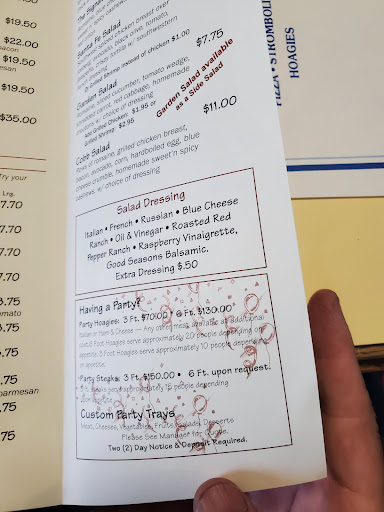 $19.50
$22.00
$19.50
$19.50
$35.00
Try your
Lrg.
7.70
7.70
7.70
7.70
3.75
3.75
.75
parmesan
.75
.75
Santa Fe Salad
grilled chicken breast over
black olive, tomato,
w/ southwestern
Grilled Shrimp instead of chicken $1.00
$7.75
Garden Salad
sliced cucumber, tomato wedge,
shredded carrot, red cabbage, homemade
croutons w/ choice of dressing
Add Grilled Chicken $1.95 or
Grilled Shrimp $2.95
Garden Salad available
as a Side Salad
$11.00
Cobb Salad
Rows of romaine, grilled chicken breast,
bacon, avocado, corn, hardboiled egg, blue
cheese crumble, homemade sweet'n spicy
cashews, w/ choice of dressing
Salad Dressing
Italian • French • Russian • Blue Cheese
Ranch • Oil & Vinegar • Roasted Red
Pepper Ranch • Raspberry Vinaigrette,
Good Seasons Balsamic.
Extra Dressing $.50
Having a Party?
Party Hoagies: 3 Ft. $70.00 • 6 Ft. $130.00
Italian or Ham & Cheese — Any other meat available at additional
cost. 6 Foot Hoagies serve approximately 20 people depending on
appetite. 3 Foot Hoagies serve approximately 10 people depending
on appetite.
Party Steaks: 3 Ft. $150.00 • 6 Ft. upon request.
3 Ft. Steaks serve approximately 15 people depending
upon appetite
Custom Party Trays
Meat, Cheeses, Vegetable, Fruits, Salads, Desserts
Please See Manager for Choice.
Two (2) Day Notice & Deposit Required.
PIZZA • STROMBOLI
HOAGIES